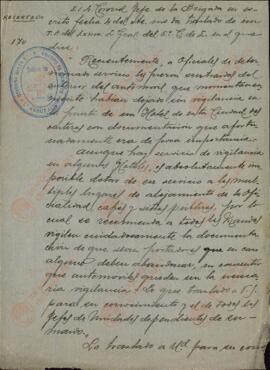 RESERVADO
El Sr Coronel Jefe de la Brigada en es-
crito fecha 4 del actl. me da traslado de
del Excmo. Sr Genl. del 5º C. de E. en el que
dice:
170
"Recientemente, a Oficiales de deter-
minado servicio les fueron sustraidas del
interior del automovil que momentanea-
mente habian dejado sin vigilancia en
frente de un Hotel de esta Ciudad dos
carteras con documentación que afortu-
nadamente era de poca importancia.
Aunque hay servicio de vigilancia
en algunos Hoteles, es absolutamente im-
posible dotar de ese servicio a los mul-
tiples lugares de alojamiento de la Ofi-
cialidad, cafes y sitios publicos, por lo
cual se recomienda a todos los Mandos
vigilen cuidadosamente la documenta-
ción de que sean portadores que en caso
alguno deben abandonar, en
que automoviles queden sin la necesa-
ria vigilancia. Lo que traslado a V.S.
para su conocimiento y el de todos los
Jefes de Unidades dependientes de su
mando.
Lo traslado a Vd. para su cono-